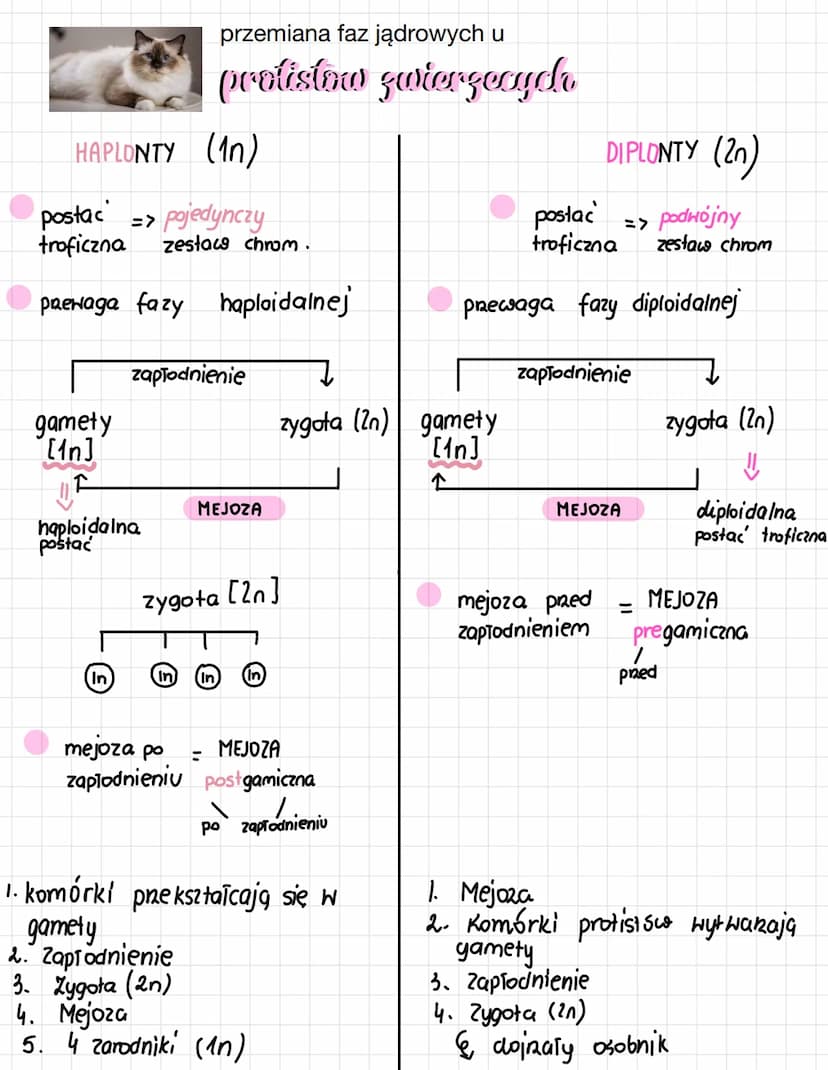 przemiana faz jądrowych u
protistów zwierzęcych
HAPLONTY (1n)
postać => pojedynczy
troficzna zestaw chrom.
przewaga fazy haploidalnej
zapłodnienie
gamety zygota (2n)
[1n]
MEJOZA
haploidalna
postać
zygota [2n]
1n 1n 1n 1n
mejoza po = MEJOZA
zapłodnieniu postgamiczna
po zapłodnieniu
1. komórki przekształcają się w
gamety
2. Zapłodnienie
3. Zygota (2n)
4. Mejoza
5. 4 zarodniki (1n)
DIPLONTY (2n)
postać => podwójny
troficzna zestaw chrom
przewaga fazy diploidalnej
zapłodnienie
gamety zygota (2n)
[1n]
MEJOZA
diploidalna
postać troficzna
mejoza przed = MEJOZA
zapłodnieniem pregamiczna
przed
1. Mejoza
2. Komórki protistów wytwarzają
gamety
3. Zapłodnienie
4. Zygota (2n)
dojrzały osobnik